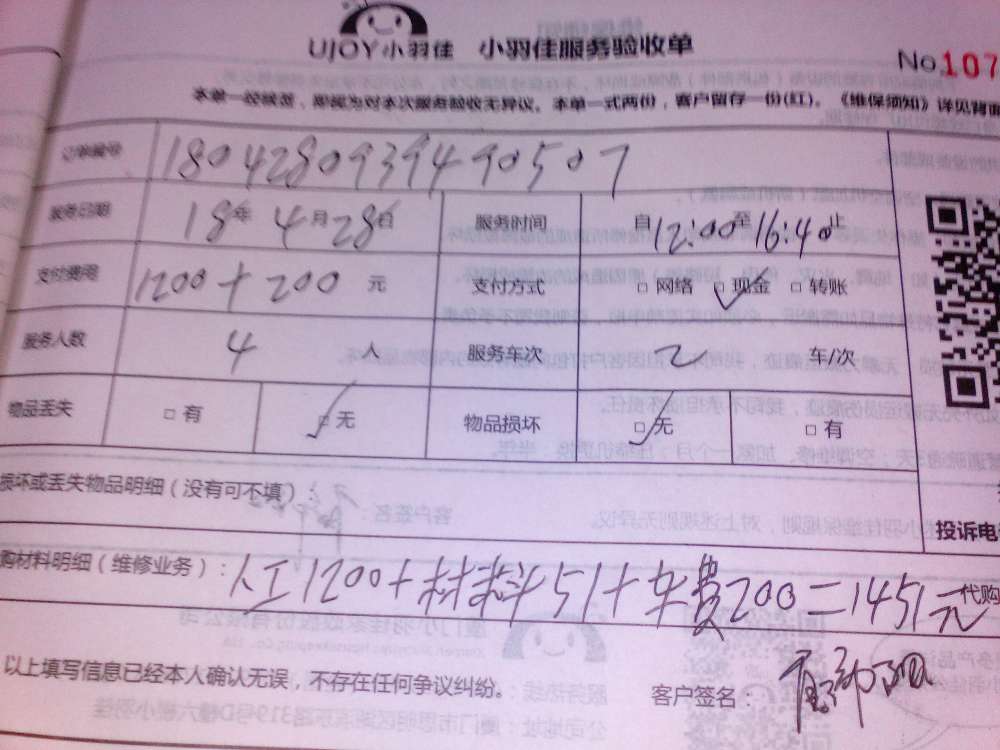 UJOY小羽佳 小羽佳服务验收单
No.107
本单一经续签，即视为对本次服务验收无异议。本单一式两份，客户留存一份(红)。《维保须知》详见背面
订单编号 180428093949 0507
服务日期 18年 4月28日 服务时间 自12:00至16:40止
支付费用 1200+200 元 支付方式 □网络 □现金 □转账
服务人数 4 人 服务车次 2 车/次
物品丢失 □有 □无 物品损坏 □无 □有
损坏或丢失物品明细（没有可不填）：
投诉电
购材料明细（维修业务）：人工1200+材料51+车费200=1451元 代购
以上填写信息已经本人确认无误，不存在任何争议纠纷。 客户签名：